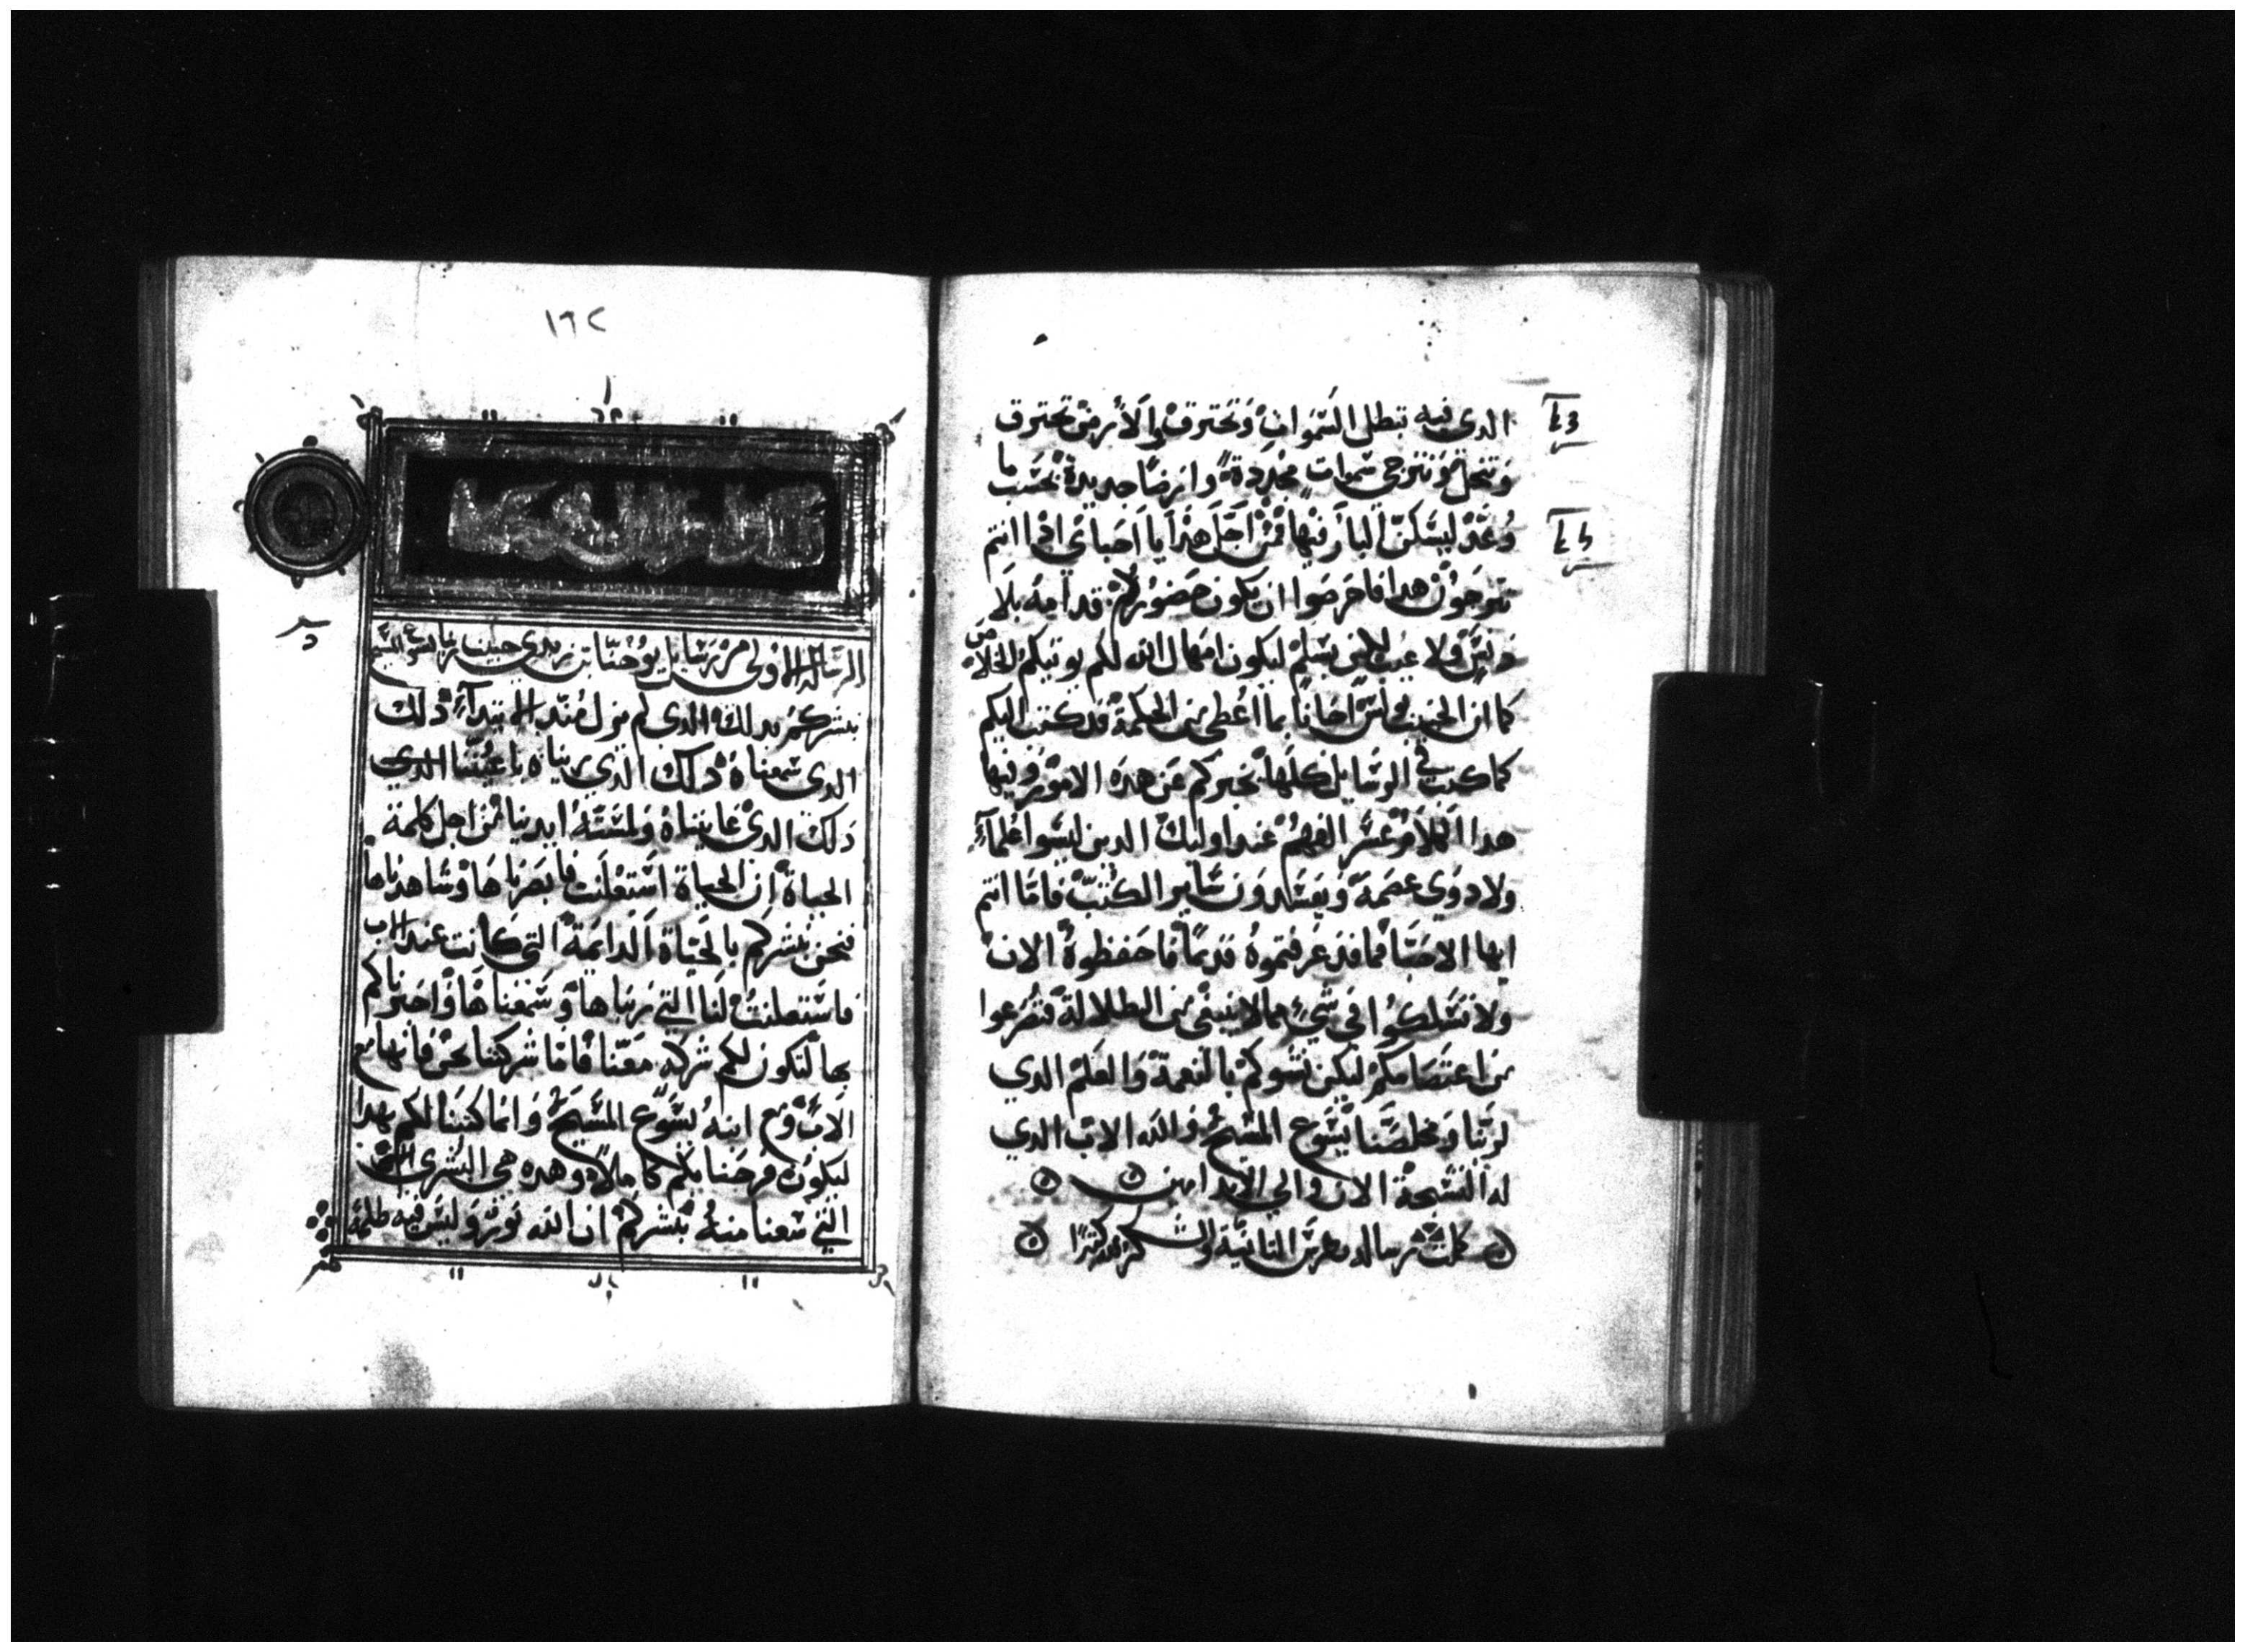 الدي فيه تبطل السموات وتحترق والأرض تحترق
وتنحل ونترجى سموات مجددة وارضا جديدة بحسب ما
وعد ليسكن البار فيها فمن اجل هدا يا احباي اذا انتم
تترجون هدا فاحرصوا ان يكون حضوركم قدامه بلا
دنس ولا عيب لاني بسلم ليكون امهال الله لكم يوتيكم الخلاص
كما ان الحبيب بولس اخانا بما اعطي من الحكمة قد كتب اليكم
كما كتب في الرسايل كلها نخبركم عن هده الامور وفيها
هدا الكلام عسر الفهم عند اوليك الدين ليسوا علمآء
ولا دوي عصمة ويفسدون ساير الكتب فاما انتم
ايها الاحبا فما قد عرفتموه قديما فاحفظوه الان
ولا تسلكوا في شيء مما لا ينبغي من الطلالة فتصرعوا
من اعتصامكم ليكن نشوكم بالنعمة والعلم الدي
لربنا ومخلصنا يسوع المسيح والله الاب الدي
له التسبحة الان والي الابد امين
كملت رسالة بطرس التانية والشكر لله كثيرا
١٦٢
الرسالة الاولى من رسايل يوحنا بن زبدي حبيب ربنا يسوع المسيح
نبشركم بدلك الدي لم يزل مند الابتدآء دلك
الدي سمعناه دلك الدي ريناه باعيننا الدي
دلك الدي عايناه ولمسته ايدينا من اجل كلمة
الحياة ان الحياة استعلنت فابصرناها وشاهدناها
فنحن نبشركم بالحياة الدايمة التي كانت عند الاب
فاستعلنت لنا التي ريناها وسمعناها واخبرناكم
بها لتكون لكم شركة معنا فاما شركتنا نحن فانها مع
الاب ومع ابنه يسوع المسيح وانما كتبنا لكم بهدا
ليكون فرحنا بكم كاملا وهده هي البشرى
التي سمعنا منه نبشركم ان الله نور وليس فيه ظلمة